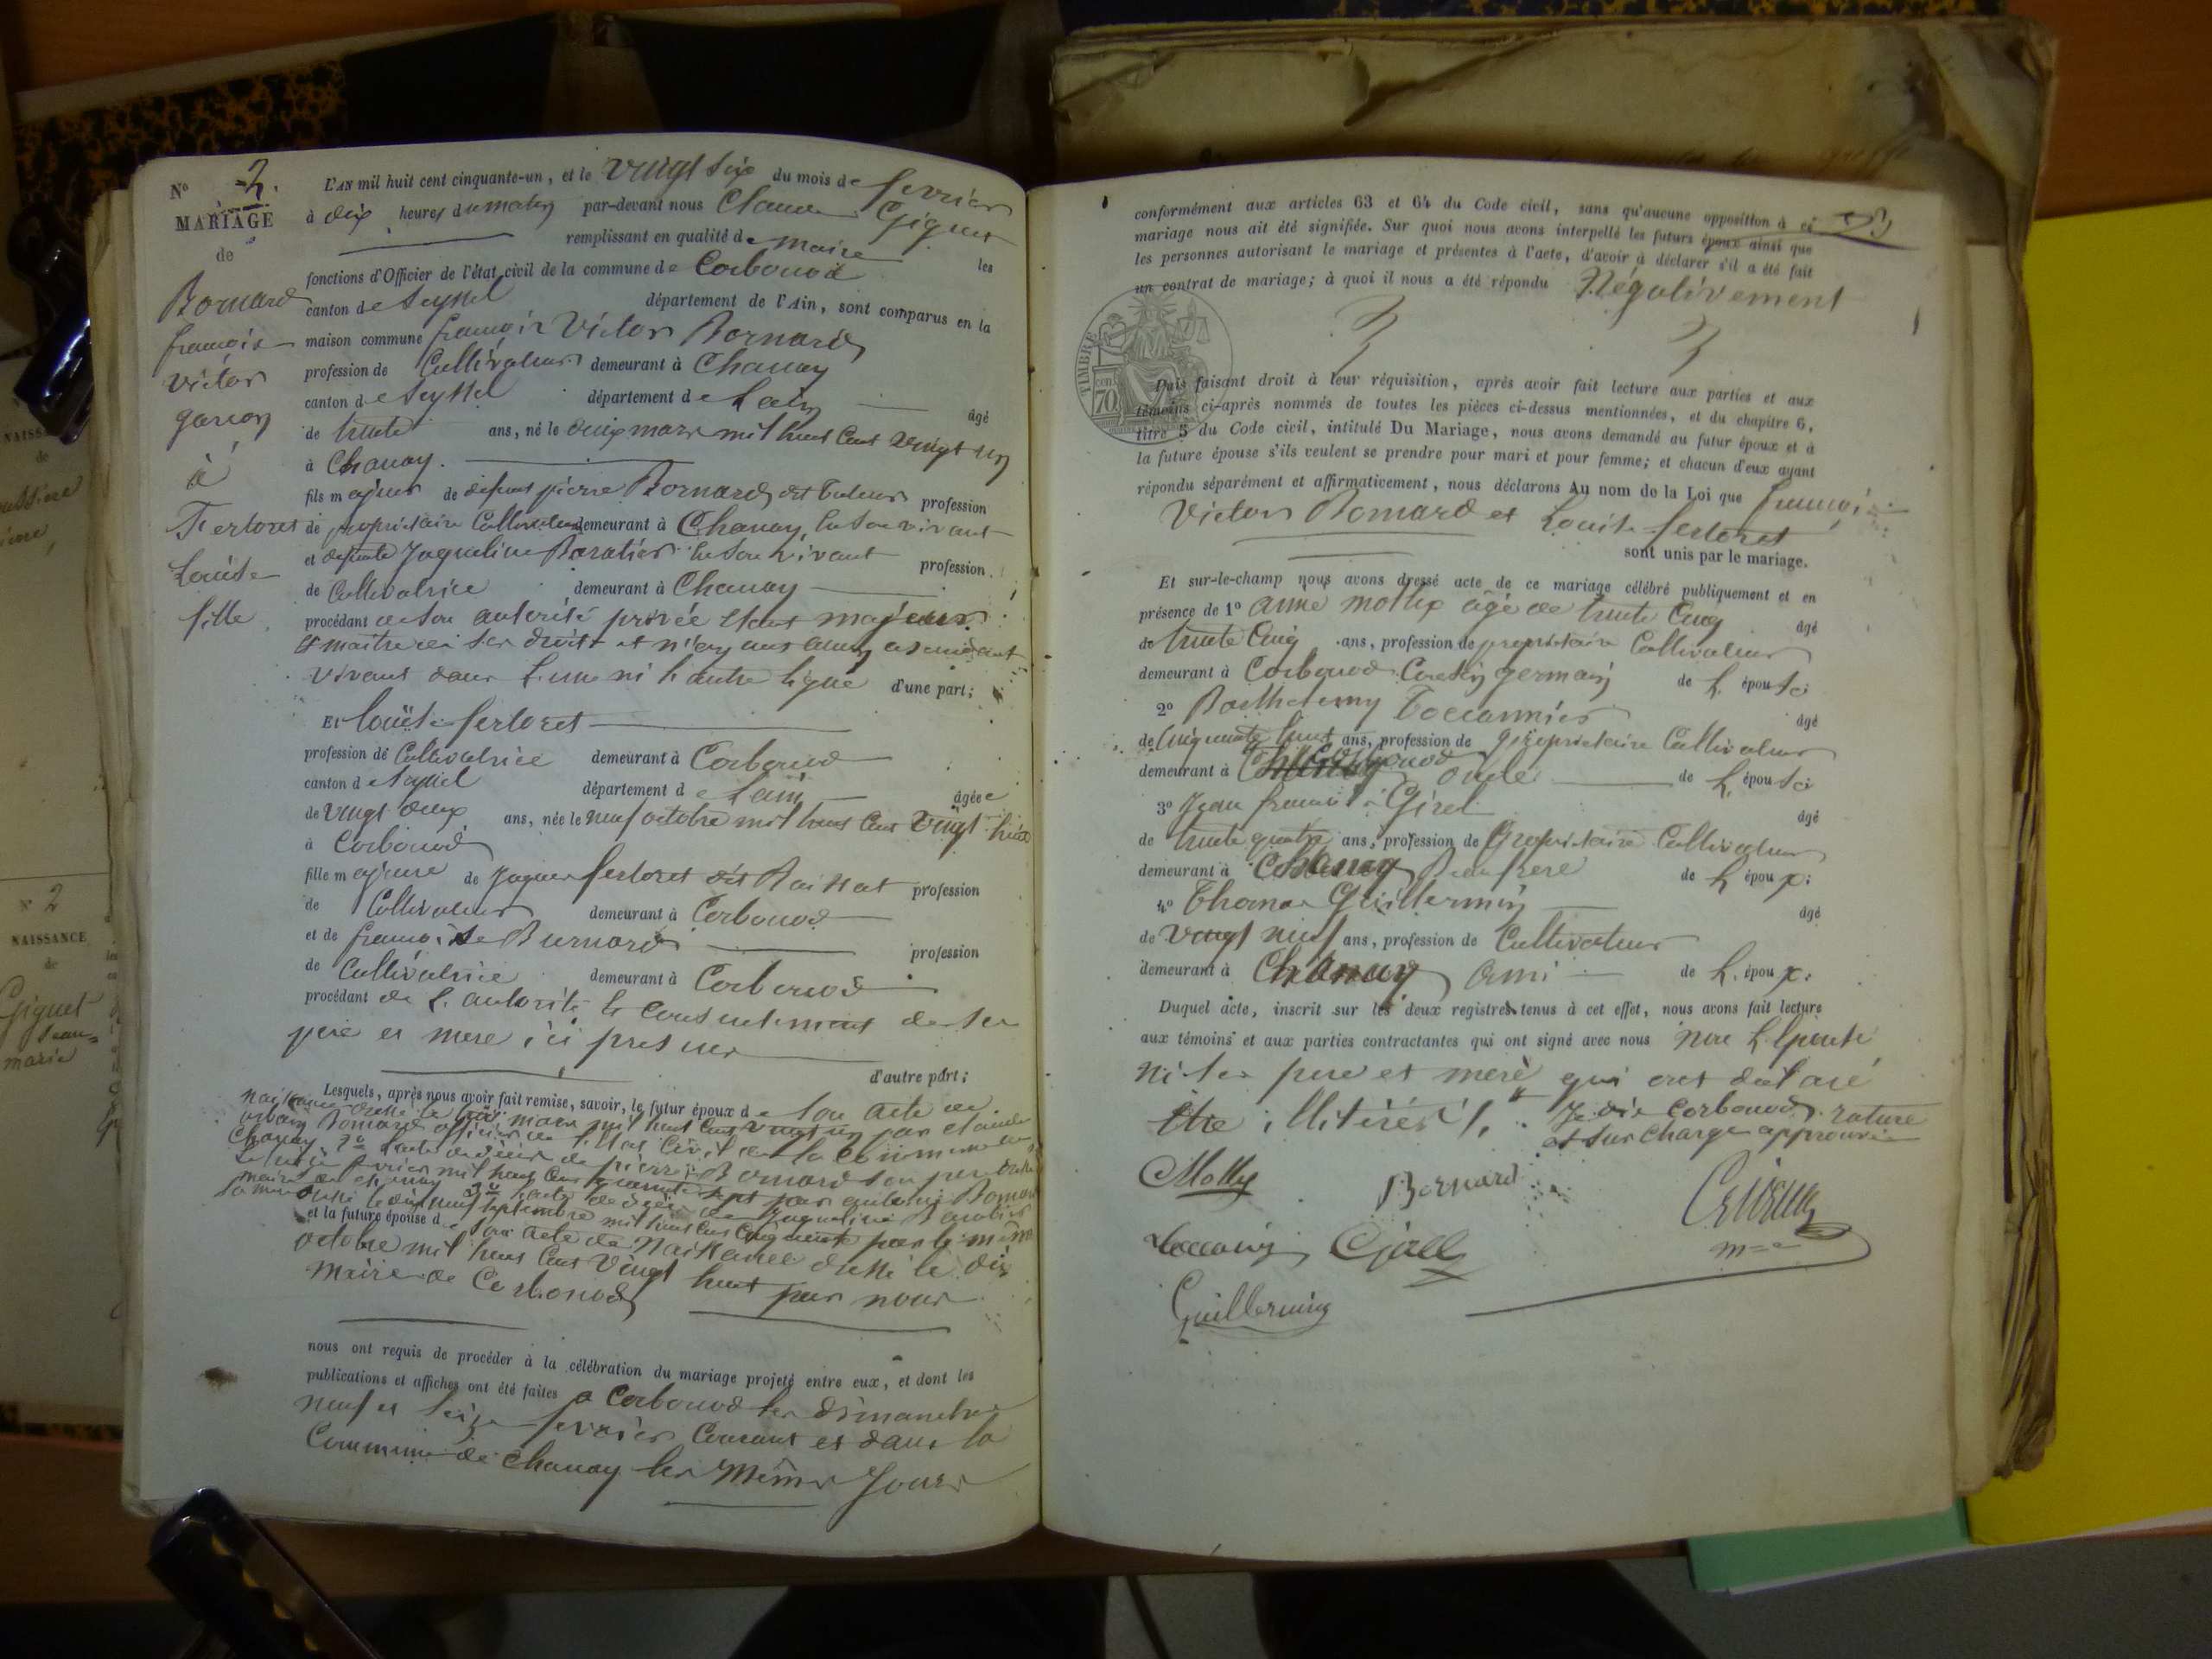 N° 2.
MARIAGE
de
Bornard
françois
victor
garçon
à
Fertoret
Louise
fille
L'AN mil huit cent cinquante-un, et le vingt six du mois de fevrier
à dix heures du matin par-devant nous Claude Giguet
remplissant en qualité de maire les
fonctions d'Officier de l'état civil de la commune de Corbonod
canton de Seyssel département de l'Ain, sont comparus en la
maison commune françois Victor Bornard
profession de Cultivateur demeurant à Chanay
canton de Seyssel département de Lain âgé
de trente ans, né le onze mars mil huit cent vingt un
à Chanay.
fils majeur de defunt pierre Bornard dit profession
de propriétaire Cultivateur demeurant à Chanay, en son vivant
et defunte Jaqueline Baratier en son vivant profession
de Cultivatrice demeurant à Chanay
procédant de son autorité privée etant majeur
et maitre de ses droits et n'ayant aucun ascendant
vivant dans l'une ni l'autre ligne d'une part;
Et Louise fertoret
profession de Cultivatrice demeurant à Corbonod
canton de Seyssel département de Lain âgée
de vingt deux ans, née le neuf octobre mil huit cent vingt huit
à Corbonod
fille majeure de Jaques fertoret dit profession
de Cultivateur demeurant à Corbonod
et de françoise Burnard profession
de Cultivatrice demeurant à Corbonod
procédant de l'autorité le consentement de ses
père et mere ici presents
d'autre part;
Lesquels, après nous avoir fait remise, savoir, le futur époux de son acte de
naissance dressé le mars mil huit cent vingt un par claude
urbain Bornard officier de l'état civil de la commune de
Chanay 2° l'acte de décès de pierre Bornard son père dressé
le fevrier mil huit cent quarante sept par Bornard
maire de chanay 3° l'acte de décès de Jaqueline Baratier
sa mere dressé le dix neuf septembre mil huit cent cinquante par le même
et la future épouse de son acte de naissance dressé le dix
octobre mil huit cent vingt huit par nous
maire de Corbonod
nous ont requis de procéder à la célébration du mariage projeté entre eux, et dont les
publications et affiches ont été faites a Corbonod les dimanches
neuf et seize fevrier Courant et dans la
Commune de Chanay les mêmes Jours
conformément aux articles 63 et 64 du Code civil, sans qu'aucune opposition à ce
mariage nous ait été signifiée. Sur quoi nous avons interpellé les futurs époux ainsi que
les personnes autorisant le mariage et présentes à l'acte, d'avoir à déclarer s'il a été fait
un contrat de mariage; à quoi il nous a été répondu Négativement
TIMBRE
70 cent
Puis faisant droit à leur réquisition, après avoir fait lecture aux parties et aux
témoins ci-après nommés de toutes les pièces ci-dessus mentionnées, et du chapitre 6,
titre 5 du Code civil, intitulé Du Mariage, nous avons demandé au futur époux et à
la future épouse s'ils veulent se prendre pour mari et pour femme; et chacun d'eux ayant
répondu séparément et affirmativement, nous déclarons Au nom de la Loi que françois
Victor Bornard et Louise fertoret
sont unis par le mariage.
Et sur-le-champ nous avons dressé acte de ce mariage célébré publiquement et en
présence de 1° aimé âgé de trente cinq âgé
de trente cinq ans, profession de propriétaire Cultivateur
demeurant à Corbonod Cousin germain de l'épouse;
2° Barthelemy âgé
de cinquante huit ans, profession de propriétaire Cultivateur
demeurant à Corbonod oncle de l'épouse;
3° Jean françois Girel âgé
de trente quatre ans, profession de Propriétaire Cultivateur
demeurant à Chanay Beaufrere de l'époux;
4° Thomas Guillermin âgé
de vingt neuf ans, profession de Cultivateur
demeurant à Chanay ami de l'époux;
Duquel acte, inscrit sur les deux registres tenus à cet effet, nous avons fait lecture
aux témoins et aux parties contractantes qui ont signé avec nous non l'épouse
ni ses pere et mere qui ont declaré
être illitérés. Je dis Corbonod. rature
et surcharge approuvée
Bornard
Guillermin
NAISSANCE
de
N° 2
NAISSANCE
de
Giguet
Jean-
marie